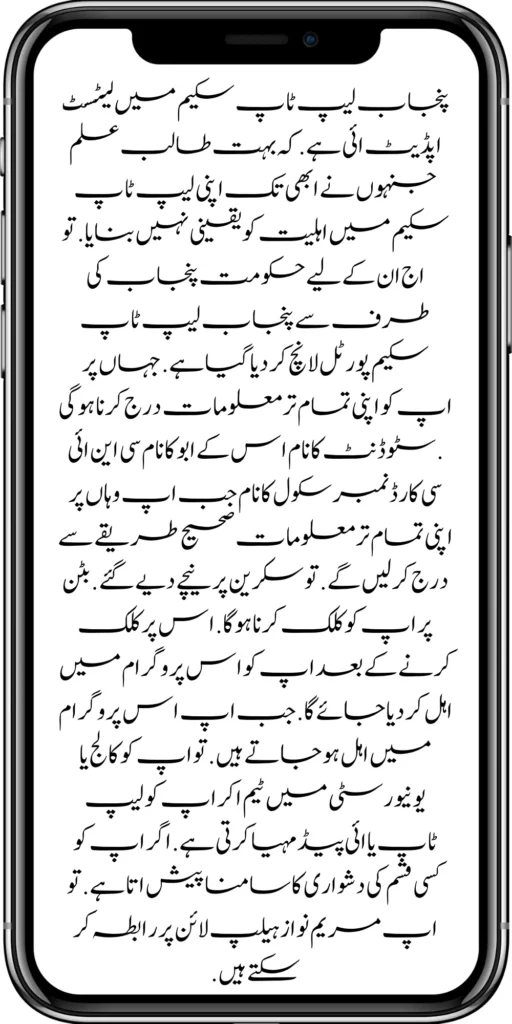 پنجاب لیپ ٹاپ سکیم میں لیٹسٹ
اپڈیٹ ائی ہے. کہ بہت طالب علم
جنہوں نے ابھی تک اپنی لیپ ٹاپ
سکیم میں اہلیت کو یقینی نہیں بنایا. تو
اج ان کے لیے حکومت پنجاب کی
طرف سے پنجاب لیپ ٹاپ
سکیم پورٹل لانچ کر دیا گیا ہے. جہاں پر
اپ کو اپنی تمام تر معلومات درج کرنا ہوگی
.سٹوڈنٹ کا نام اس کے ابو کا نام سی این ائی
سی کارڈ نمبر سکول کا نام جب اپ وہاں پر
اپنی تمام تر معلومات صحیح طریقے سے
درج کر لیں گے. تو سکرین پر نیچے دیے گئے. بٹن
پر اپ کو کلک کرنا ہوگا. اس پر کلک
کرنے کے بعد اپ کو اس پروگرام میں
اہل کر دیا جائے گا.جب اپ اس پروگرام
میں اہل ہو جاتے ہیں. تو اپ کو کالج یا
یونیورسٹی میں ٹیم ا کر اپ کو لیپ
ٹاپ یا ائی پیڈ مہیا کرتی ہے. اگر اپ کو
کسی قسم کی دشواری کا سامنا پیش اتا ہے. تو
اپ مریم نواز ہیلپ لائن پر رابطہ کر
سکتے ہیں.